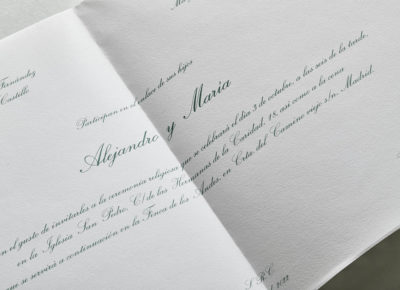 Fernández
Castillo
Participan el enlace de sus hijos
Alejandro y María
en el gusto de invitarles a la ceremonia religiosa que se celebrará el día 3 de octubre, a las seis de la tarde,
en la Iglesia San Pedro, C/ de las Hermanas de la Caridad, 18, así como a la cena
que se servirá a continuación en la Finca de los Andes, en Crta. del Camino viejo s/n. Madrid.
S. R. C.
2022